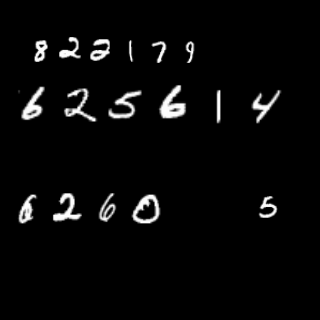 822179
625614
6260 5